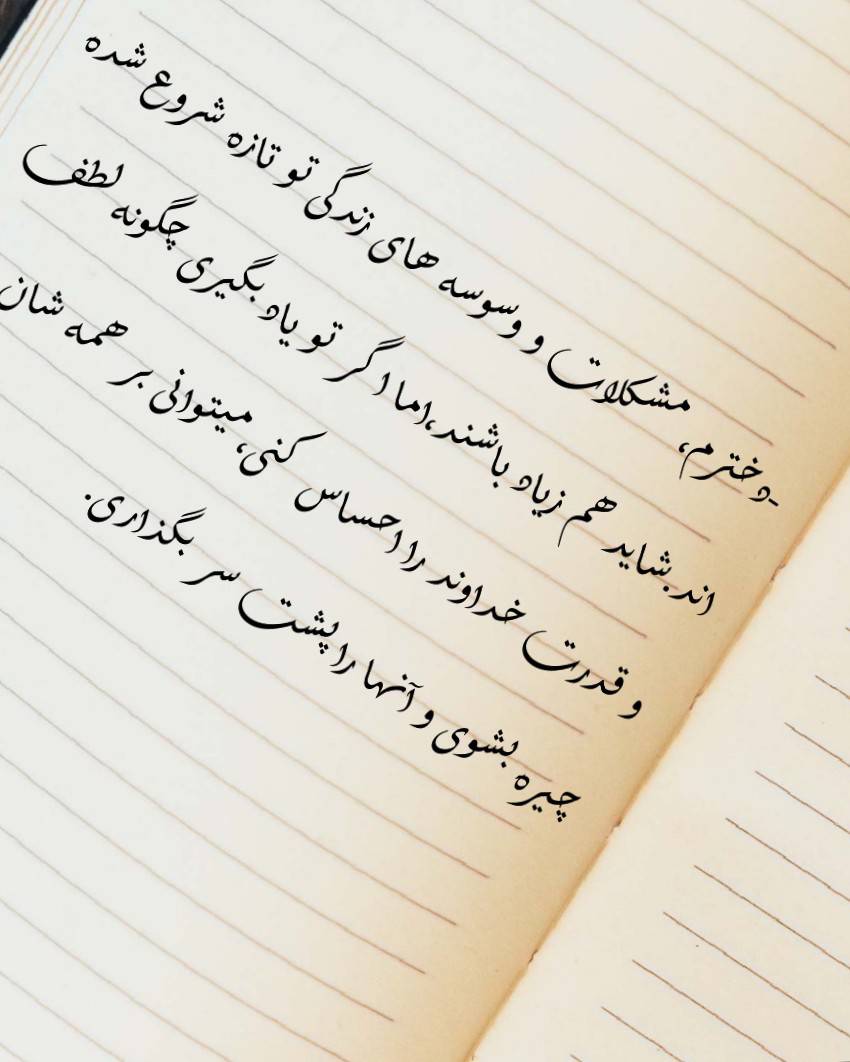 -دخترم، مشکلات و وسوسه های زندگی تو تازه شروع شده
اند.شاید هم زیاد باشند،اما اگر تو یاد بگیری چگونه لطف
و قدرت خداوند را احساس کنی، میتوانی بر همه شان
چیره بشوی و آنها را پشت سر بگذاری.